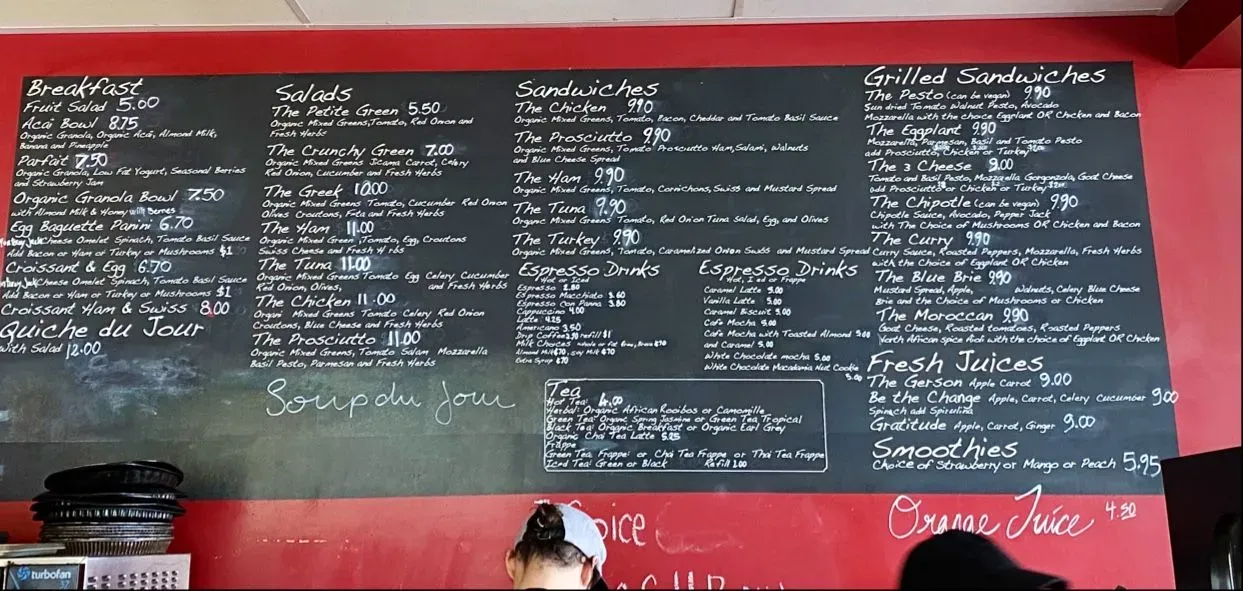 Breakfast
Fruit Salad 5.60
Acai Bowl 8.75
Organic Granola, Organic Acai, Almond Milk,
Banana and Pineapple
Parfait 7.50
Organic Granola, Low Fat Yogurt, Seasonal Berries
and Strawberry Jam
Organic Granola Bowl 7.50
with Almond Milk & Honey with Berries
Egg Baguette Panini 6.70
Cheese Omelet Spinach, Tomato Basil Sauce
Add Bacon or Ham or Turkey or Mushrooms $1
Croissant & Egg 6.70
Cheese Omelet Spinach, Tomato Basil Sauce
Add Bacon or Ham or Turkey or Mushrooms $1
Croissant Ham & Swiss 8.00
Quiche du Jour
with Salad 12.00
Salads
The Petite Green 5.50
Organic Mixed Greens, Tomato, Red Onion and
Fresh Herbs
The Crunchy Green 7.00
Organic Mixed Greens Jicama Carrot, Celery
Red Onion, Cucumber and Fresh Herbs
The Greek 10.00
Organic Mixed Greens Tomato, Cucumber Red Onion
Olives Croutons, Feta and Fresh Herbs
The Ham 11.00
Organic Mixed Green, Tomato, Egg, Croutons
Swiss Cheese and Fresh H rbs
The Tuna 11.00
Organic Mixed Greens Tomato Egg Celery Cucumber
Red Onion, Olives, and Fresh Herbs
The Chicken 11.00
Organi Mixed Greens Tomato Celery Red Onion
Croutons, Blue Cheese and Fresh Herbs
The Prosciutto 11.00
Organic Mixed Greens, Tomato Salam Mozzarella
Basil Pesto, Parmesan and Fresh Herbs
Soup du Jour
Sandwiches
The Chicken 9.90
Organic Mixed Greens, Tomato, Bacon, Cheddar and Tomato Basil Sauce
The Prosciutto 9.90
Organic Mixed Greens, Tomato Prosciutto Ham, Salami, Walnuts
and Blue Cheese Spread
The Ham 9.90
Organic Mixed Greens, Tomato, Cornichons, Swiss and Mustard Spread
The Tuna 9.90
Organic Mixed Greens Tomato, Red Onion Tuna Salad, Egg, and Olives
The Turkey 9.90
Organic Mixed Greens, Tomato, Caramelized Onion Swiss and Mustard Spread
Espresso Drinks
Hot or Iced
Espresso 2.80
Espresso Macchiato 3.60
Espresso con Panna 3.80
Cappuccino 4.00
Latte 4.25
Americano 3.50
Drip Coffee 2.90 refill $1
Milk Choices whole or fat free,
Almond Milk $.70, Soy Milk $.70
Extra Syrup $.70
Espresso Drinks
Hot, Iced or Frappe
Caramel Latte 5.00
Vanilla Latte 5.00
Caramel Biscuit 5.00
Cafe Mocha 5.00
Cafe Mocha with Toasted Almond 5.00
and Caramel 5.00
White Chocolate mocha 5.00
White Chocolate Macadamia Nut Cookie
5.00
Tea
Hot Tea: 4.00
Herbal: Organic African Rooibos or Camomille
Green Tea: Organic Spring Jasmine or Green Tea Tropical
Black Tea: Organic Breakfast or Organic Earl Grey
Organic Chai Tea Latte 5.25
Frappe
Green Tea Frappe or Chai Tea Frappe or Thai Tea Frappe
Iced Tea: Green or Black Refill 1.00
Grilled Sandwiches
The Pesto (can be vegan) 9.90
Sun dried Tomato Walnut Pesto, Avocado
Mozzarella with the choice Eggplant OR Chicken and Bacon
The Eggplant 9.90
Mozzarella, Parmesan, Basil and Tomato Pesto
add Prosciutto, Chicken or Turkey
The 3 Cheese 9.00
Tomato and Basil Pesto, Mozzarella Gorgonzola, Goat Cheese
add Prosciutto or Chicken or Turkey
The Chipotle (can be vegan) 9.90
Chipotle Sauce, Avocado, Pepper Jack
with The Choice of Mushrooms OR Chicken and Bacon
The Curry 9.90
Curry Sauce, Roasted Peppers, Mozzarella, Fresh Herbs
with the Choice of Eggplant OR Chicken
The Blue Brie 9.90
Mustard Spread, Apple, Walnuts, Celery Blue Cheese
Brie and the Choice of Mushrooms or Chicken
The Moroccan 9.90
Goat Cheese, Roasted tomatoes, Roasted Peppers
North African spice Aioli with the choice of Eggplant OR Chicken
Fresh Juices
The Gerson Apple Carrot 9.00
Be the Change Apple, Carrot, Celery Cucumber 9.00
Spinach add Spirulina
Gratitude Apple, Carrot, Ginger 9.00
Smoothies
Choice of Strawberry or Mango or Peach 5.95
Orange Juice 4.50
Spice
turbofan